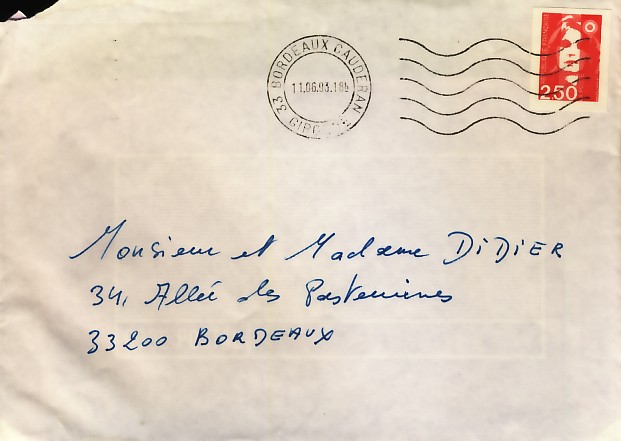 33 BORDEAUX CAUDERAN
11.06.93.18h
GIRONDE
2,50
Monsieur et Madame DiDiER
34, Allée des
33200 BORDEAUX